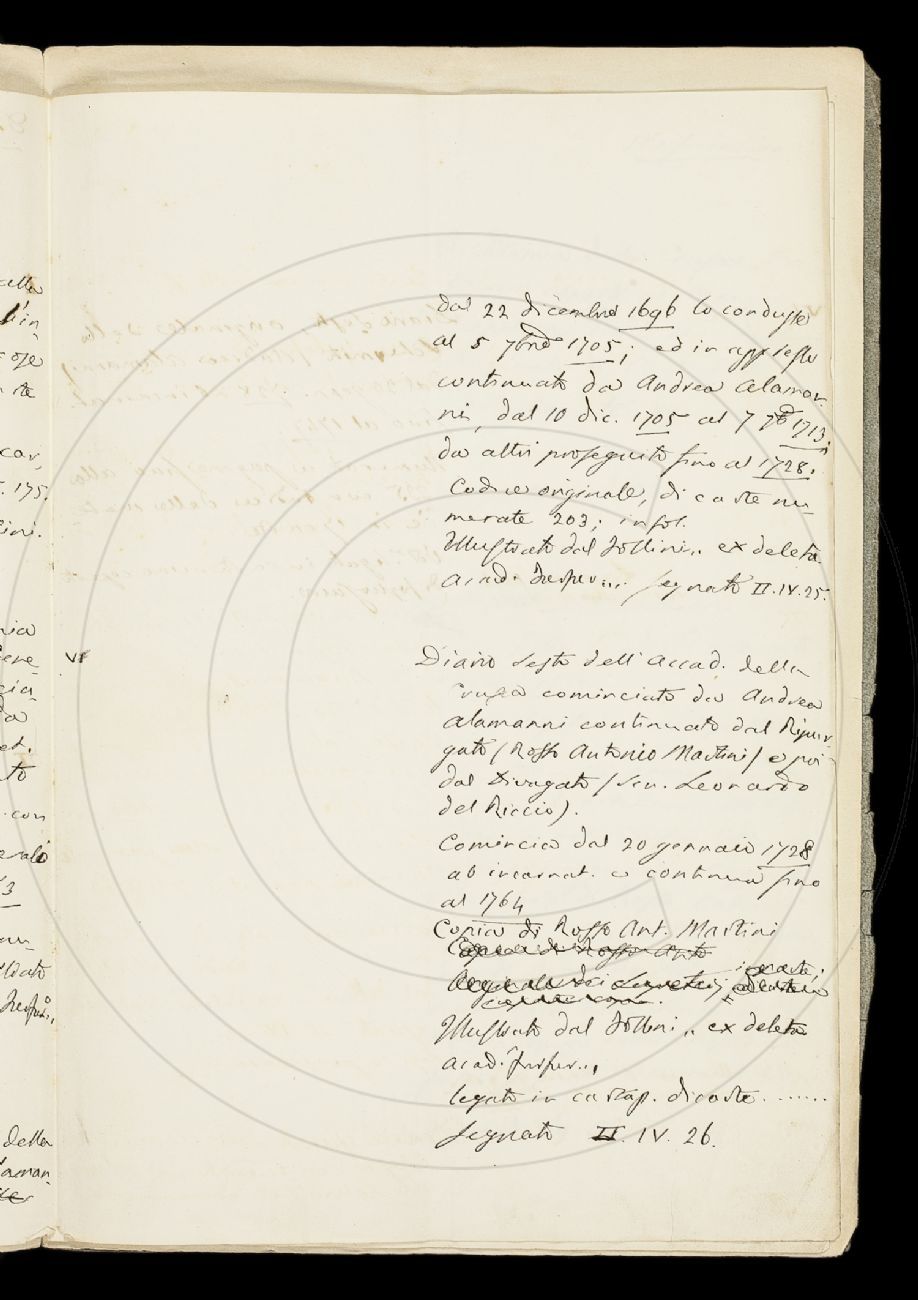 dal 22 dicembre 1696 lo condusse
al 5 7bre 1705; ed in appresso
continuato da Andrea Alaman-
ni, dal 10 dic. 1705 al 7 7b 1713,
da altri proseguito fino al 1728.
Codice originale, di carte nu-
merate 203; in fol.
Illustrato dal Follini,, ex deleta
Acad. Furfur.... segnato II.IV.25.
VI
Diario sesto dell'Accad. della
Crusca cominciato da Andrea
Alamanni continuato dal Ripur-
gato (Rosso Antonio Martini) e poi
dal Divagato (Sen. Leonardo
del Riccio).
Comincia dal 20 gennaio 1728
ab incarnat. e continua fino
al 1764
Copia di Rosso Ant. Martini
Copia di Rosso Anto
Illustrato dal Follini,, ex deleta
acad. Furfur..,
legato in cartap. di carte .......
segnato II. IV. 26.